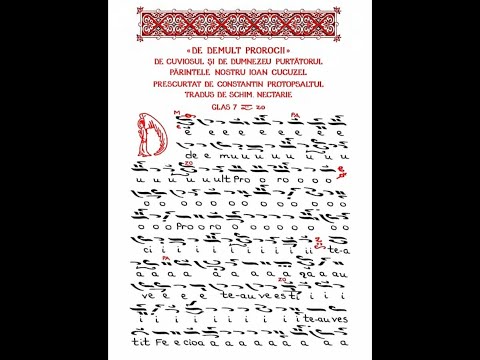 «DE DEMULT PROROCII»
DE CUVIOSUL ŞI DE DUMNEZEU PURTĂTORUL
PĂRINTELE NOSTRU IOAN CUCUZEL
PRESCURTAT DE CONSTANTIN PROTOPSALTUL
TRADUS DE SCHIM. NECTARIE
GLAS 7 ZO
D e e e e e e e e
de e mu u u u u u u
u u u u u ult Pro o ro o o o
o o o o o o o o o o o
o o Pro o ro o o o o o o
ci i i i i i i i ii te-a
a a a a a a a a a au
ve e e e te-au ve es ti i i
i i i i i i i i te-au ves
tit Fe e cioa a a a a a a